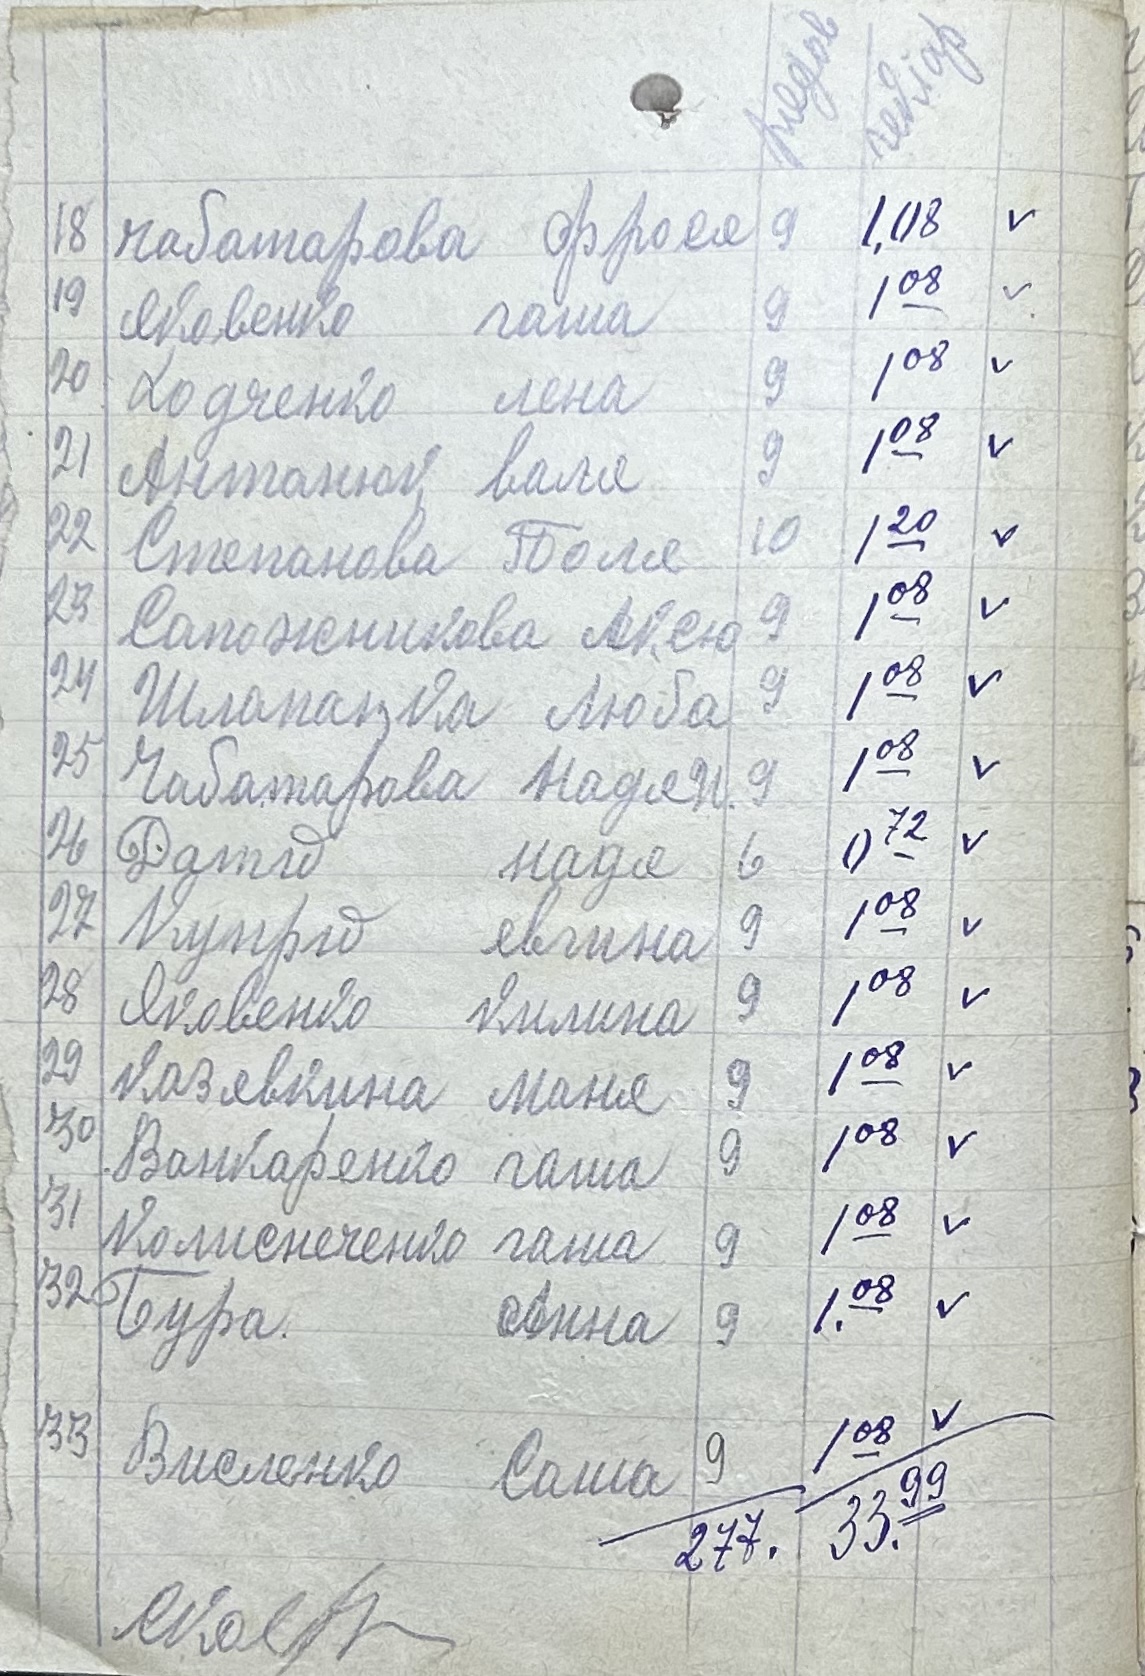 рядов гектар
18 чабатарова фрося 9 1,08 v
19 яковенко гаша 9 1 08 v
20 Ходченко лена 9 1 08 v
21 Антанюк валя 9 1 08 v
22 Степанова Поля 10 1 20 v
23 Сапожникова Аксю 9 1 08 v
24 Шлапацка Люба 9 1 08 v
25 Чабатарова Надя И. 9 1 08 v
26 надя 6 0 72 v
27 Купрід явгина 9 1 08 v
28 Яковенко килина 9 1 08 v
29 Казявкина маня 9 1 08 v
30 Ванкаренко гаша 9 1 08 v
31 Колиснеченко гаша 9 1 08 v
32 Бура. Анна 9 1. 08 v
33 Висленко Саша 9 1 08 v
277. 33. 99